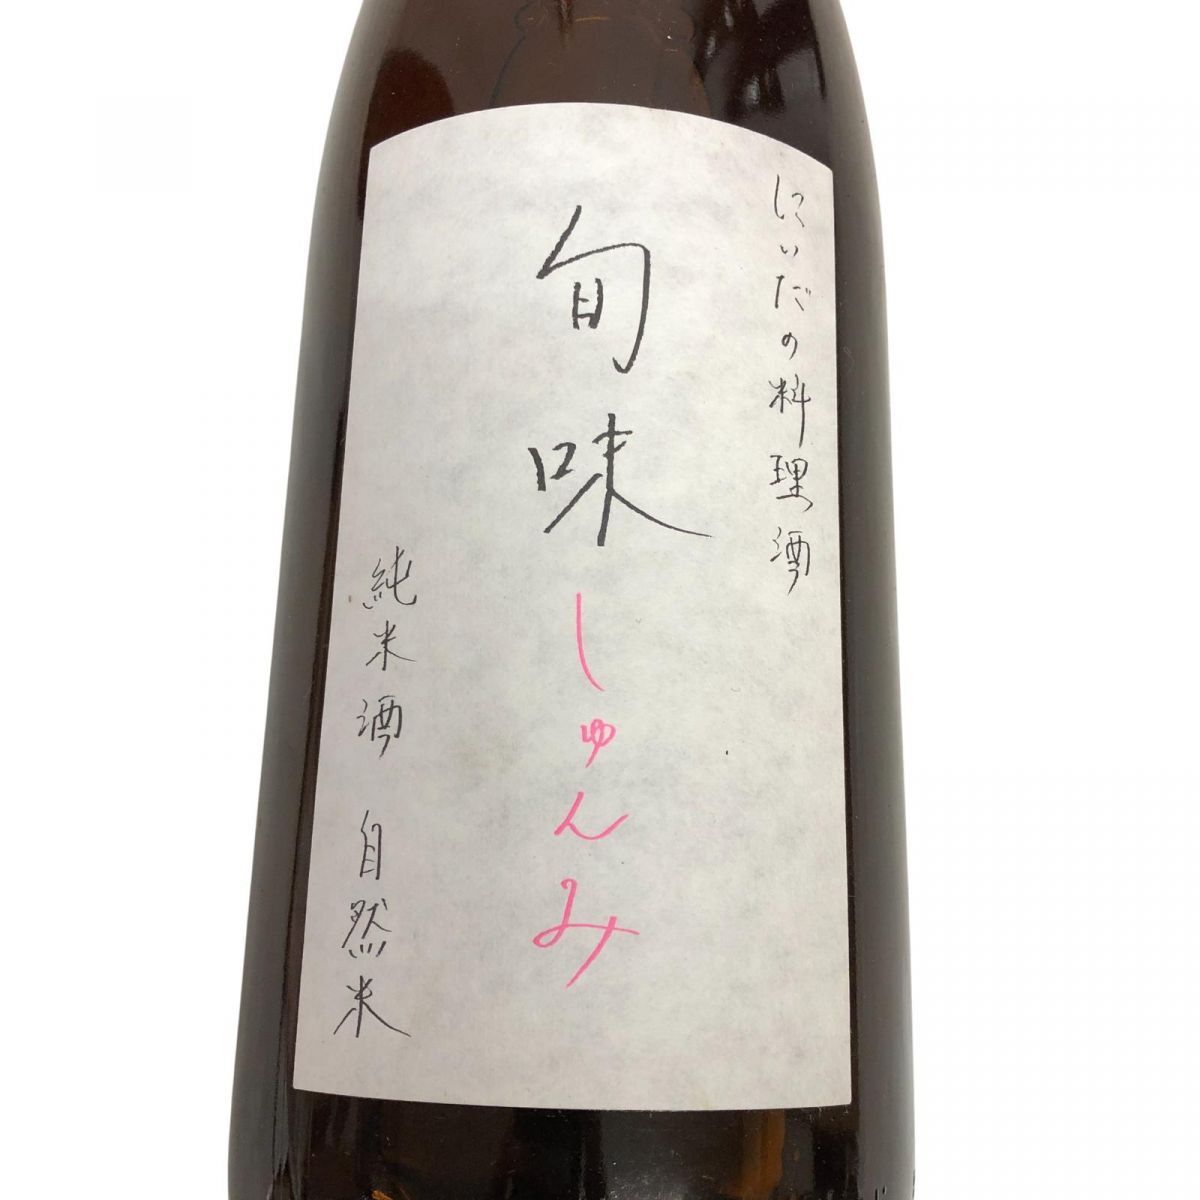 にいだの料理酒
旬味
しゅんみ
純米酒 自然米